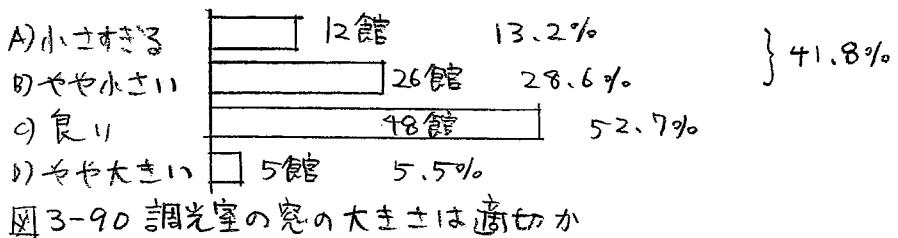 A)小さすぎる 12館 13.2%
B)やや小さい 26館 28.6% } 41.8%
C)良い 48館 52.7%
D)やや大きい 5館 5.5%
図3-90 調光室の窓の大きさは適切か